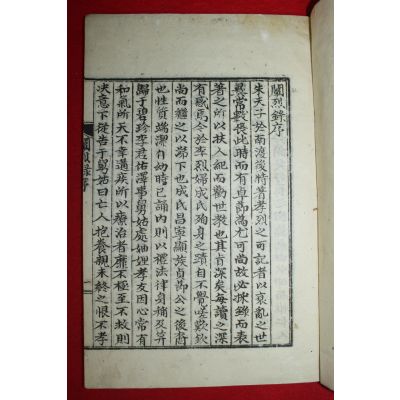 闡烈錄序
朱夫子於南渡後特著孝烈之可記者以衰亂之世
彛常斁喪此時而有卓尙尤可尙故必採錄而表
著之所以扶人紀而勸世敎也其旨深矣每讀之深
有感焉今於李烈婦成氏殉身之蹟自不覺嗟歎欽
尙而繼之以涕下也成氏昌寧顯族貞節公之後裔
也性質端潔自幼時已誦內則以禮法律身稱及笄
歸于碧珍李君佑澤事舅姑處妯娌孝友因心常有
和氣所天不幸遘疾所以療治者靡不極至不救則
决意下從告于舅姑曰亡人抱養親未終之恨不孝
闡烈錄序
一